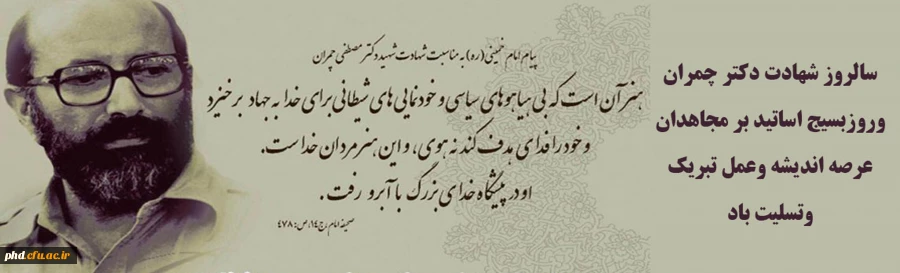 سالروز شهادت دکتر چمران
وروزبسیج اساتید بر مجاهدان
عرصه اندیشه وعمل تبریک
وتسلیت باد
پیام امام خمینی (ره) به مناسبت شهادت شهید دکتر مصطفی چمران
هنر آن است که بی هیاهوهای سیاسی و خودنمایی های شیطانی برای خدا به جهاد برخیزد
و خود را فدای هدف کند نه هوی، و این هنر مردان خداست.
او در پیشگاه خدای بزرگ با آبرو رفت.
صحیفه امام، ج۱۴، ص: ۴۷۸
phd.cfu.ac.ir